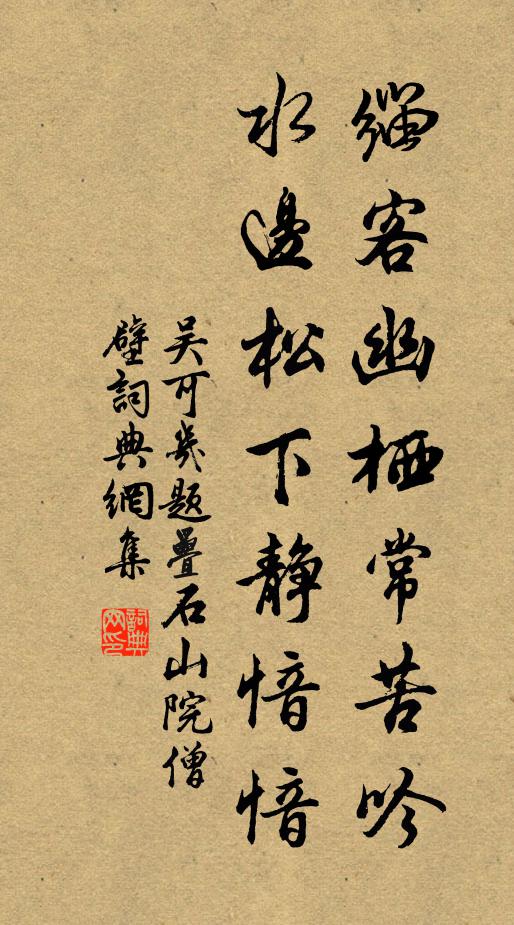 缁客幽栖常苦吟
水邊松下靜愔愔
吴可幾題疊石山院僧
壁詞典網集
詞典网印